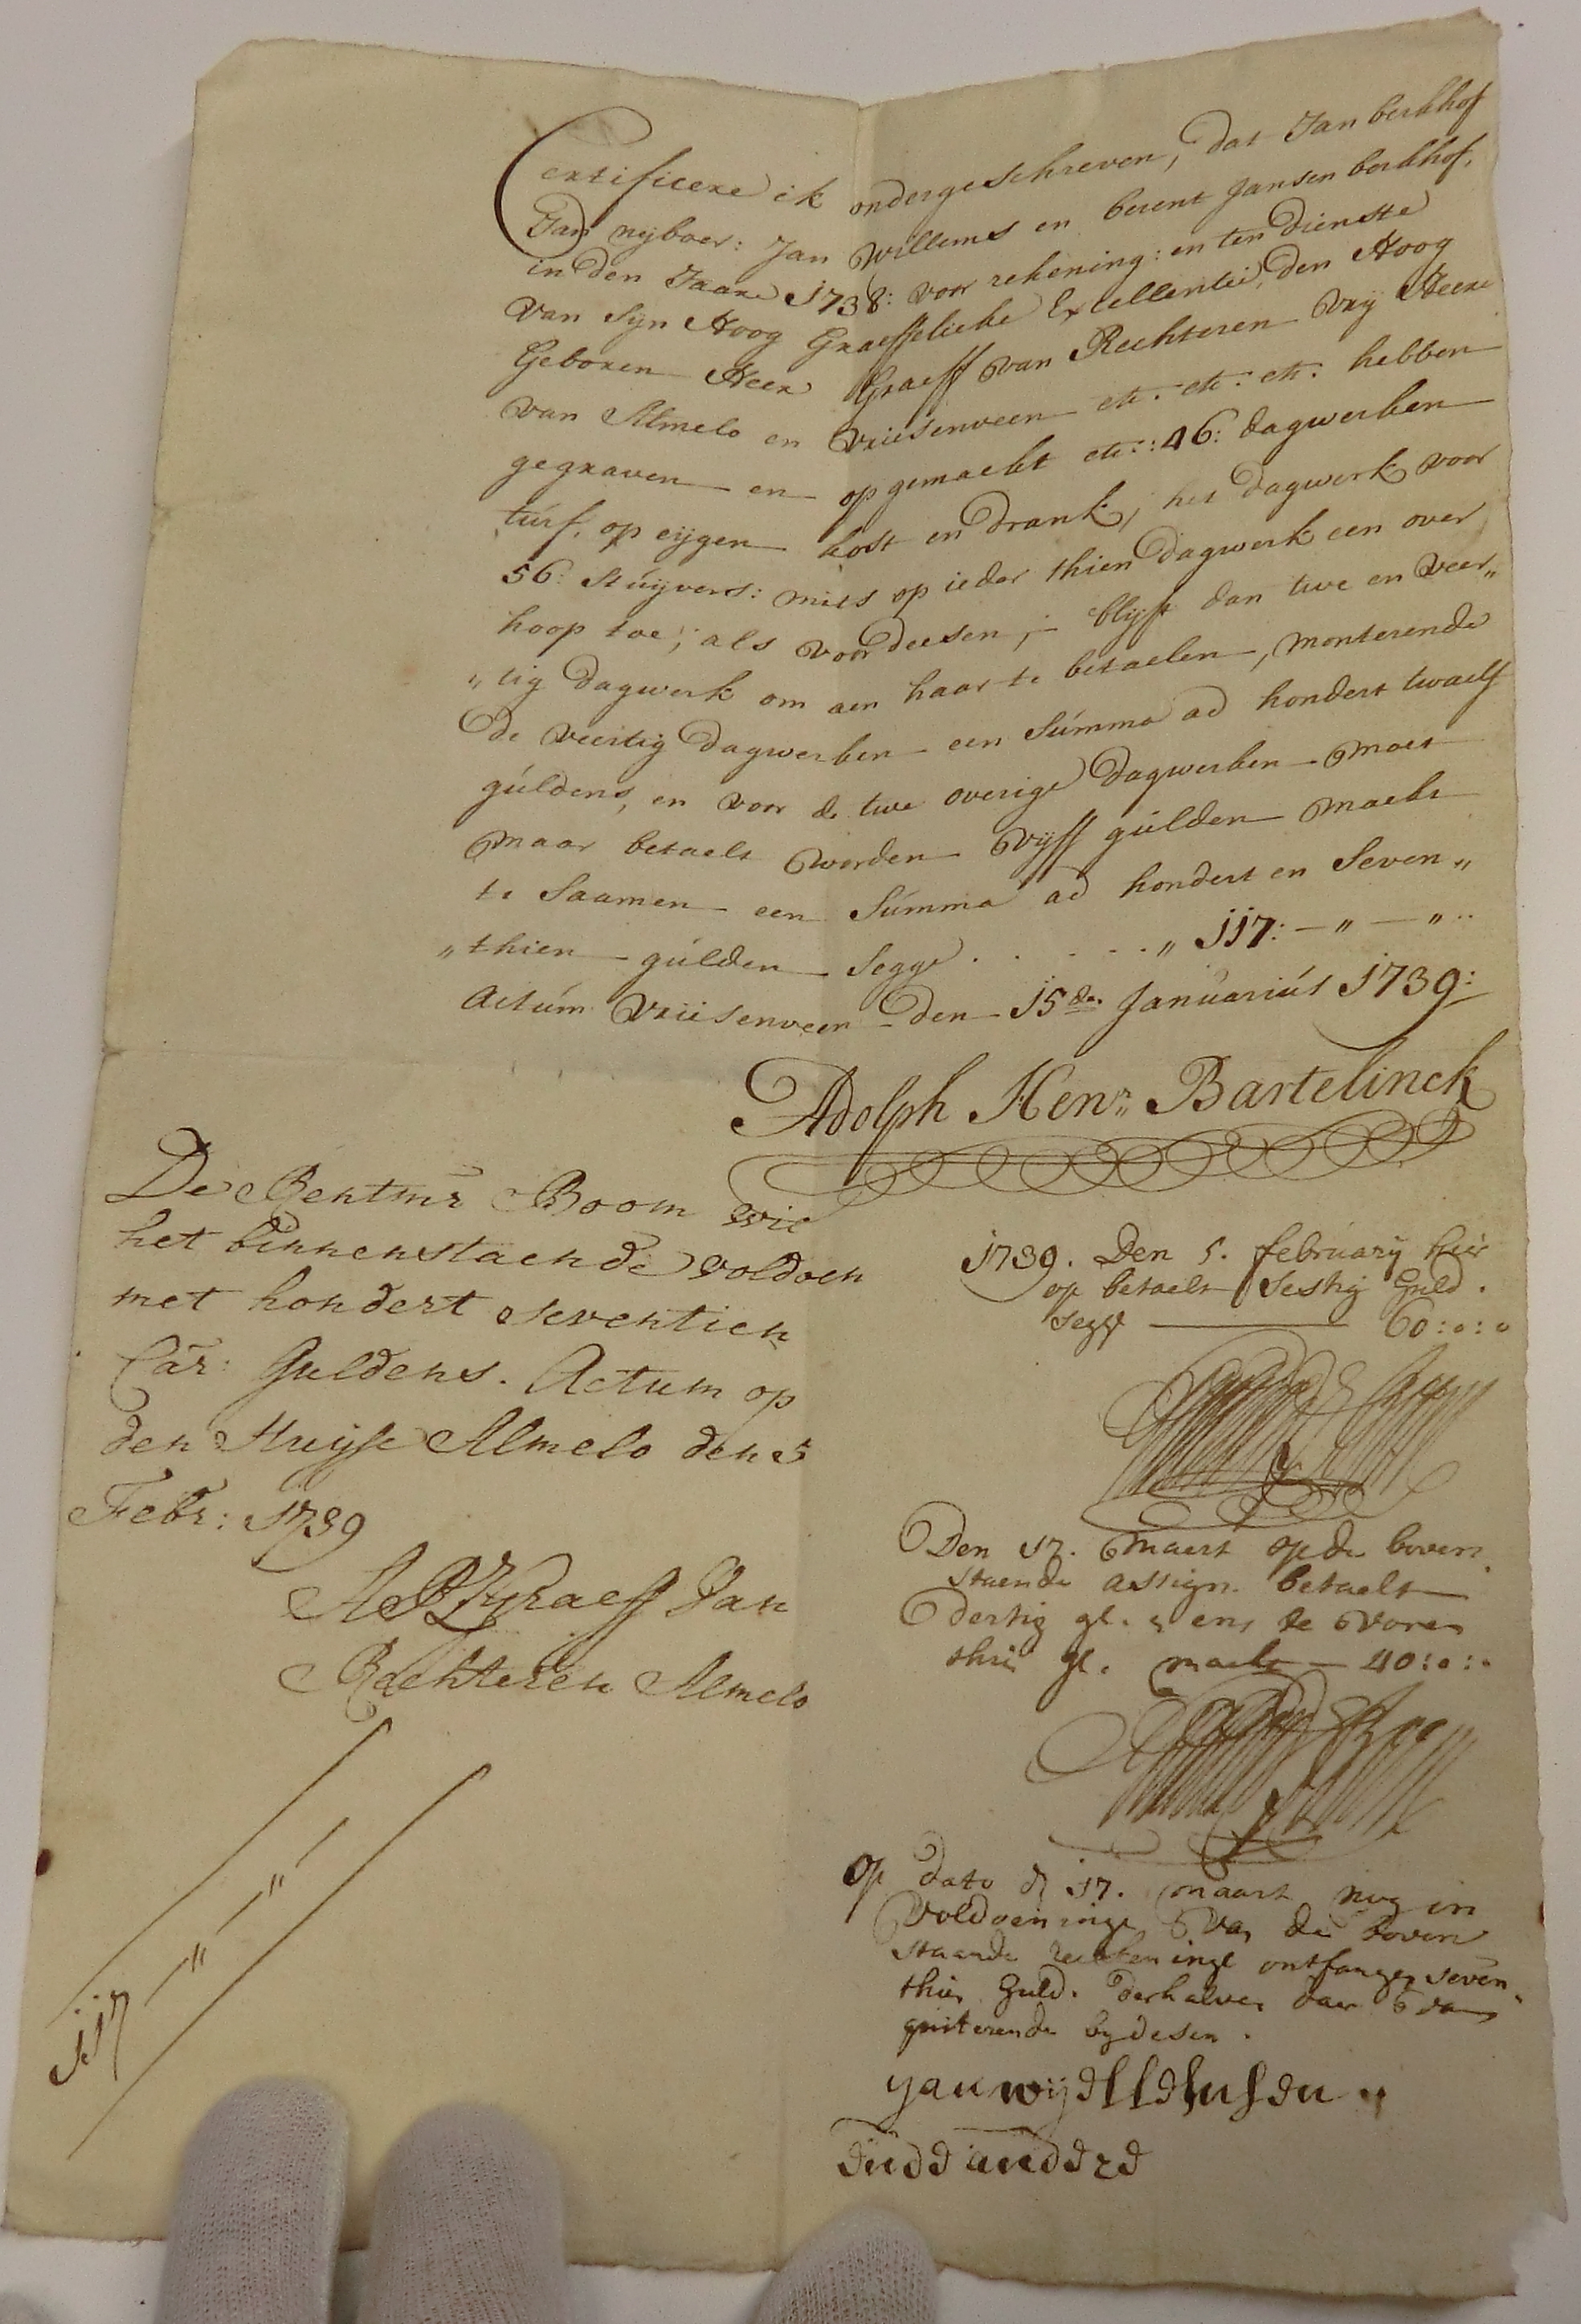 Certificere ik ondergeschreven, dat Jan berkhof
Jan nijboer: Jan Willems en berent Jansen berkhof,
in den Jaare 1738: voor rekening: en ten dienste
van Sijn Hoog Graeffelicke Excellentie, den Hoog
Geboren Heer Graeff van Rechteren vrij Heere
van Almelo en Vriesenveen etc. etc. etc. hebben
gegraven en op gemaekt etc.: 46: dagwerken
turf, op eijgen kost en drank, het dagwerk voor
56: Stuijvers: mits op ieder thien dagwerk een over
hoop toe, als voor deesen, blijft dan twe en veer„
„tig dagwerk om aen haar te betaelen, monterende
de veertig dagwerken een Summa ad hondert twaelf
guldens, en voor de twe overige dagwerken moet
maar betaelt worden vijff gulden maekt
te Saamen een Summa ad hondert en Seven„
„thien gulden Segge . . . . . „ 117: — „ — „ ..
Actum Vriesenveen den 15de. Januariús 1739:
Adolph Henr: Bartelinck
De Rentmr Boom wil
het binnenstaende voldoen
met hondert seventien
Car: Guldens. Actum op
den Huijse Almelo den 5
Febr: 1739
Graeff van
Rechteren Almelo
117 — „ — „ —
1739. Den 5. februarij hier
op betaelt Sestig Guld.
segge — 60:0:0
Den 17. Maert op de boven
staende assign. betaelt
dertig gl. en te voren
thien gl. maekt — 40:0:0
op dato d 17. maart nog in
voldoeninge van de boven
staande rekeninge ontfangen seven
thien Guld. derhalven daer van
quiterende bij desen.
Jan